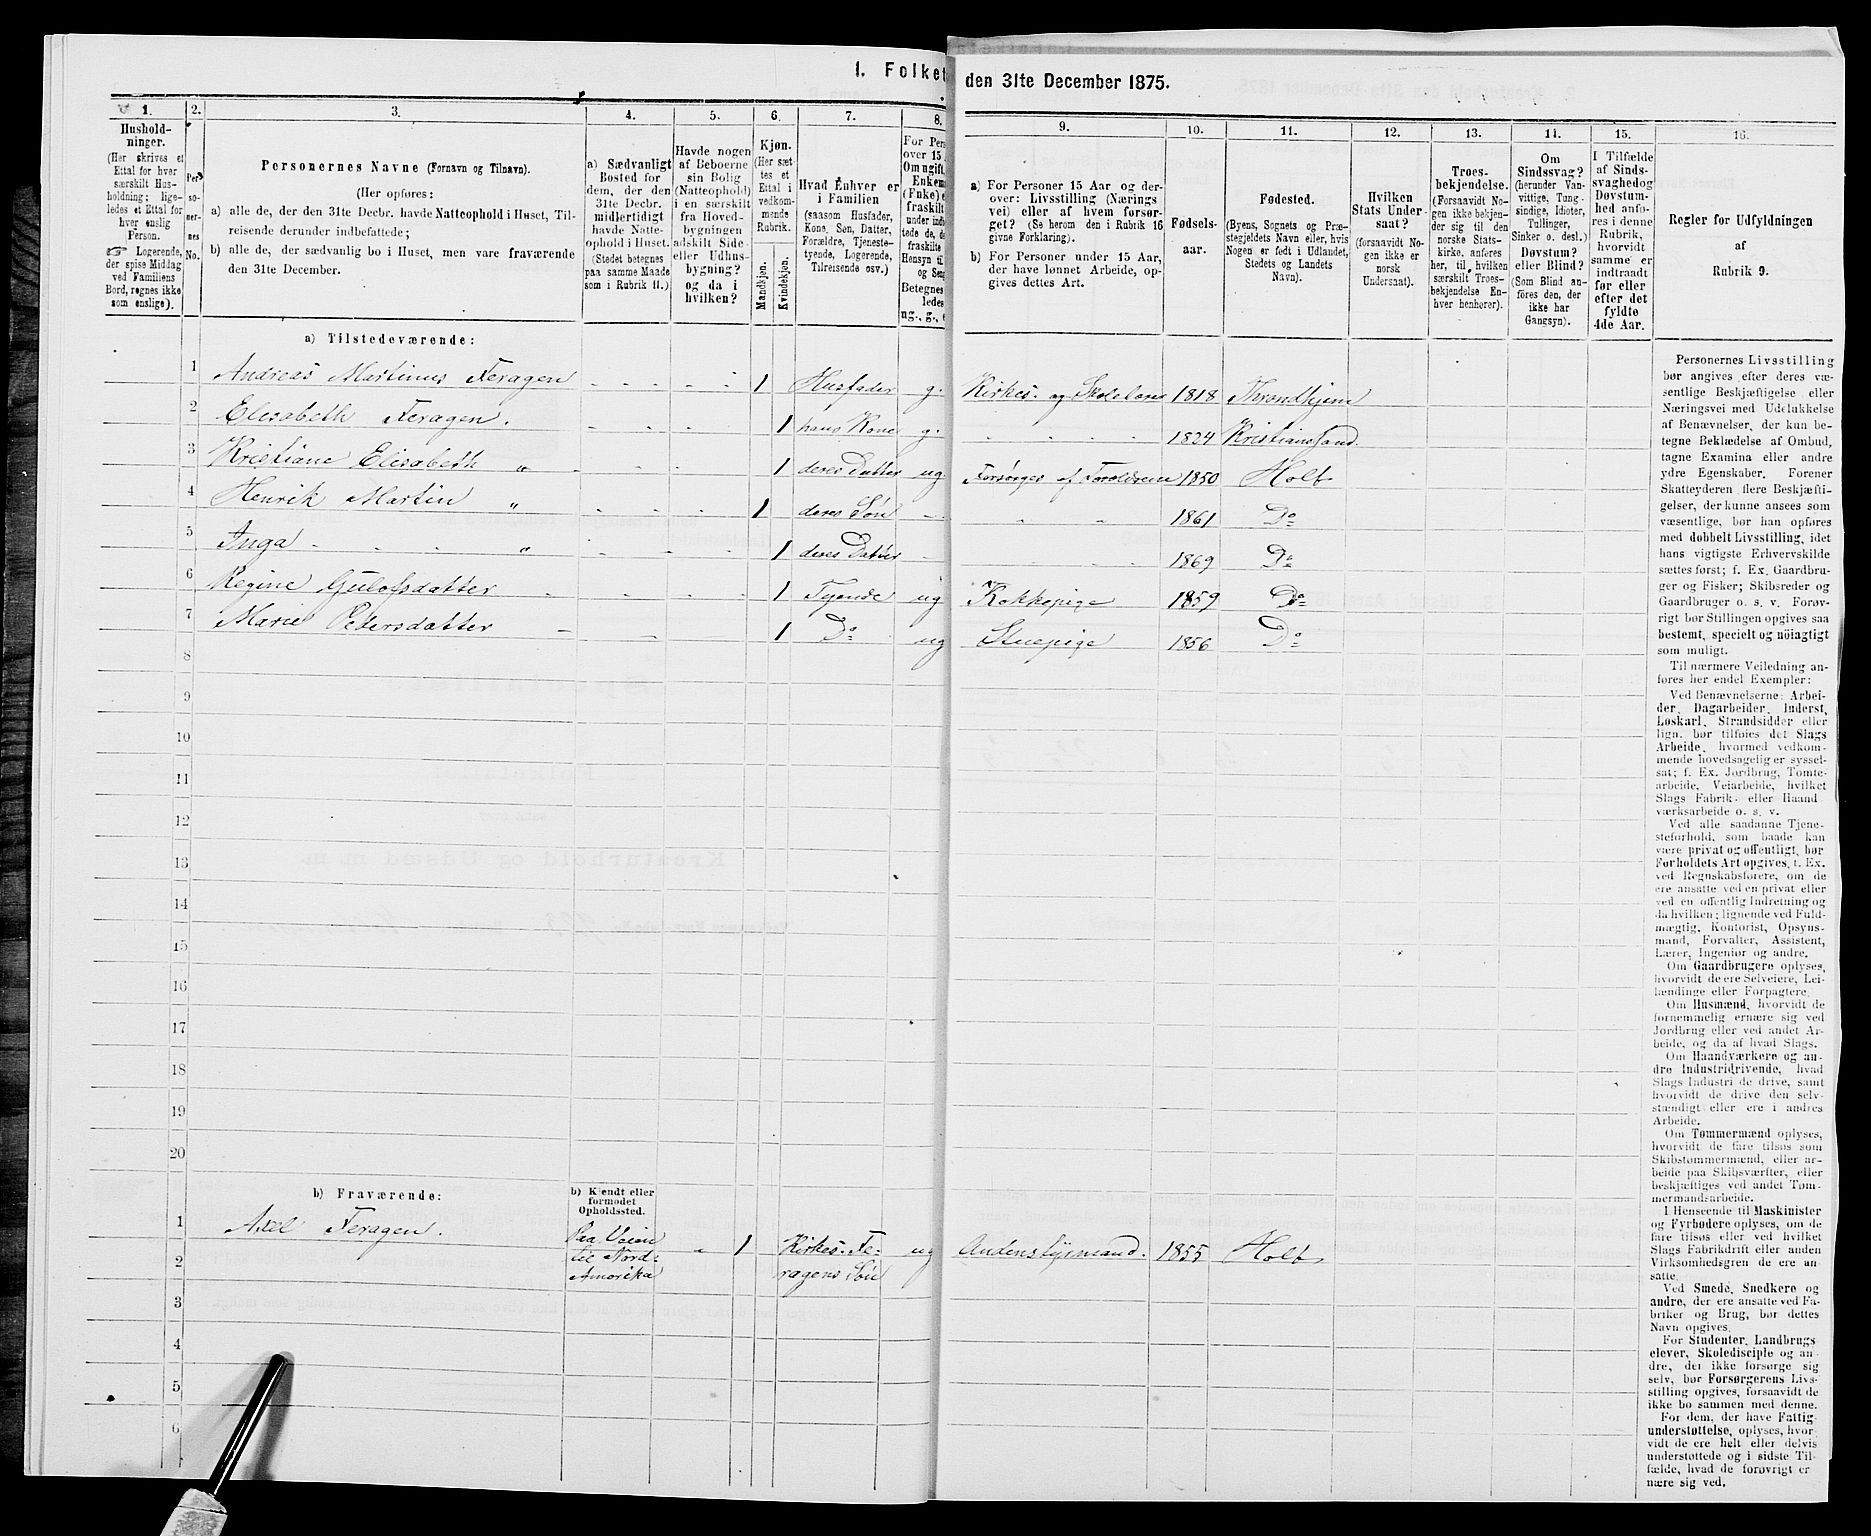 1. Folket
den 31te December 1875.
1.
2.
3.
4.
5.
6.
7.
8.
9.
10.
11.
12.
13.
14.
15.
16.
Hushold-
ninger.
(Her skrives et
Ettal for hver
særskilt Hus-
holdning; lige-
ledes et Ettal for
hver enslig
Person.
Logerende,
der spise Middag
ved Familiens
Bord, regnes ikke
som enslige).
Per-
so-
ner-
nes
No.
Personernes Navne (Fornavn og Tilnavn).
(Her opføres:
a) alle de, der den 31te Decbr. havde Natteophold i Huset, Til-
reisende derunder indbefattede;
b) alle de, der sædvanlig bo i Huset, men vare fraværende
den 31te December.
a) Sædvanligt
Bosted for
dem, der den
31te Decbr.
midlertidigt
havde Natte-
ophold i Huset.
(Stedet betegnes
paa samme Maade
som i Rubrik 11.)
Havde nogen
af Beboerne
sin Bolig
(Natteophold)
i en særskilt
fra Hoved-
bygningen
adskilt Side-
eller Udhus-
bygning?
og da i
hvilken?
Kjøn.
(Her sæt-
tes et
Ettal i
vedkom-
mende
Rubrik.
Mandkjøn.
Kvindekjøn.
Hvad Enhver er
i Familien
(saasom Husfader,
Kone, Søn, Datter,
Forældre, Tjeneste-
tyende, Logerende,
Tilreisende osv.)
For Pers
over 15
Om ugift,
Enkem
(Enke) e
fraskilt
under indb
tede de,
fraskilte
Hensyn til
og Seng
Betegnes
ledes
ug., g.,
a) For Personer 15 Aar og der-
over: Livsstilling (Nærings
vei) eller af hvem forsør-
get? (Se herom den i Rubrik 16
givne Forklaring).
b) For Personer under 15 Aar,
der have lønnet Arbeide, op-
gives dettes Art.
Fødsels-
aar.
Fødested.
(Byens, Sognets og Præ-
stegjeldets Navn eller, hvis
Nogen er født i Udlandet,
Stedets og Landets
Navn).
Hvilken
Stats Under-
saat?
(forsaavidt No-
gen ikke er
norsk
Undersaat).
Troes-
bekjendelse.
(Forsaavidt No-
gen ikke bekjen-
der sig til den
norske Stats-
kirke, anføres
her, til hvilken
særskilt Troes-
bekjendelse En-
hver henhører).
Om
Sindssvag?
(herunder Van-
vittige, Tung-
sindige, Idioter,
Tullinger,
Sinker o. desl.)
Døvstum?
eller Blind?
(Som Blind an-
føres den, der
ikke har
Gangsyn).
I Tilfælde
af Sinds-
svaghed og
Døvstum-
hed anfø-
res i denne
Rubrik,
hvorvidt
samme er
indtraadt
før eller
efter det
fyldte
4de Aar.
Regler for Udfyldningen
af
Rubrik 9.
a) Tilstedeværende:
1 Andreas Martinus Feragen - - - - 1 Husfader g. Kirkes. og Skolelærer 1818 Throndhjem
2 Elisabeth Feragen. - - - - 1 hans Kone g. - - - - 1824 Kristianssand
3 Kristiane Elisabeth " - - - - 1 deres Datter ug Forsørges af Forældrene 1850 Holt
4 Henrik Martin " - - - - 1 deres Søn - " " 1861 Do
5 Inga - - - - " - - - - 1 deres Datter - 1869 Do
6 Regine Gulofsdatter - - - - 1 Tyende ug Kokkepige 1859 Do
7 Marie Pedersdatter - - - 1 Do ug Stuepige 1856 Do
8
9
10
11
12
13
14
15
16
17
18
19
20
b) Fraværende:
b) Kjendt eller
formodet
Opholdssted.
1 Axel Feragen. Paa Veien
til Nord-
Amerika
- 1 Kirkes. Fe-
ragens Søn
ug Andenstyrmand. 1855 Holt
2
3
4
5
6
Personernes Livsstilling
bør angives efter deres væ-
sentlige Beskjæftigelse eller
Næringsvei med Udelukkelse
af Benævnelser, der kun be-
tegne Beklædelse af Ombud,
tagne Examina eller andre
ydre Egenskaber. Forener
Skatteyderen flere Beskjæfti-
gelser, der kunne ansees som
væsentlige, bør han opføres
med dobbelt Livsstilling, idet
hans vigtigste Erhvervskilde
sættes først; f. Ex. Gaardbru-
ger og Fisker; Skibsreder og
Gaardbruger o. s. v. Forøv-
rigt bør Stillingen opgives saa
bestemt, specielt og nöiagtigt
som muligt.
Til nærmere Veiledning an-
føres her endel Exempler:
Ved Benævnelserne: Arbei-
der, Dagarbeider, Inderst,
Løskarl, Strandsidder eller
lign. bør tilføies det Slags
Arbeide, hvormed vedkom-
mende hovedsagelig er syssel-
sat; f. Ex. Jordbrug, Tomte-
arbeide, Veiarbeide, hvilket
Slags Fabrik- eller Haand
værksarbeide o. s. v.
Ved alle saadanne Tjene-
steforhold, som baade kan
være privat og offentligt, bør
Forholdets Art opgives, t. Ex.
ved Regnskabsførere, om de
ere ansatte ved en privat eller
ved en offentlig Indretning og
da hvilken; lignende ved Fuld-
mægtig, Kontorist, Opsyns-
mand, Forvalter, Assistent,
Lærer, Ingeniør og andre.
Om Gaardbrugere oplyses,
hvorvidt de ere Selveiere, Lei-
lændinge eller Forpagtere.
Om Husmænd, hvorvidt de
fornemmelig ernære sig ved
Jordbrug eller ved andet Ar-
beide, og da af hvad Slags.
Om Haandværkere og an-
dre Industridrivende, hvad
Slags Industri de drive, samt
hvorvidt de drive den selv-
stændigt eller ere i andres
Arbeide.
Om Tømmermænd oplyses,
hvorvidt de fare tilsøs som
Skibstømmermænd, eller ar-
beide paa Skibsværfter, eller
beskjæftiges ved andet Tøm-
mermandsarbeide.
I Henseende til Maskinister
og Fyrbødere oplyses, om de
fare tilsøs eller ved hvilket
Slags Fabrikdrift eller anden
Virksomhedsgren de ere an-
satte.
Ved Smede, Snedkere og
andre, der ere ansatte ved Fa-
briker og Brug, bør dettes
Navn opgives.
For Studenter, Landbrugs
elever, Skoledisciple og an-
dre, der ikke forsørge sig
selv, bør Forsørgerens Livs-
stilling opgives, forsaavidt de
ikke bo sammen med denne.
For dem, der have Fattig-
understøttelse, oplyses, hvor-
vidt de ere helt eller delvis
understøttede og i sidste Til-
fælde, hvad de forøvrigt er
nære sig ved.